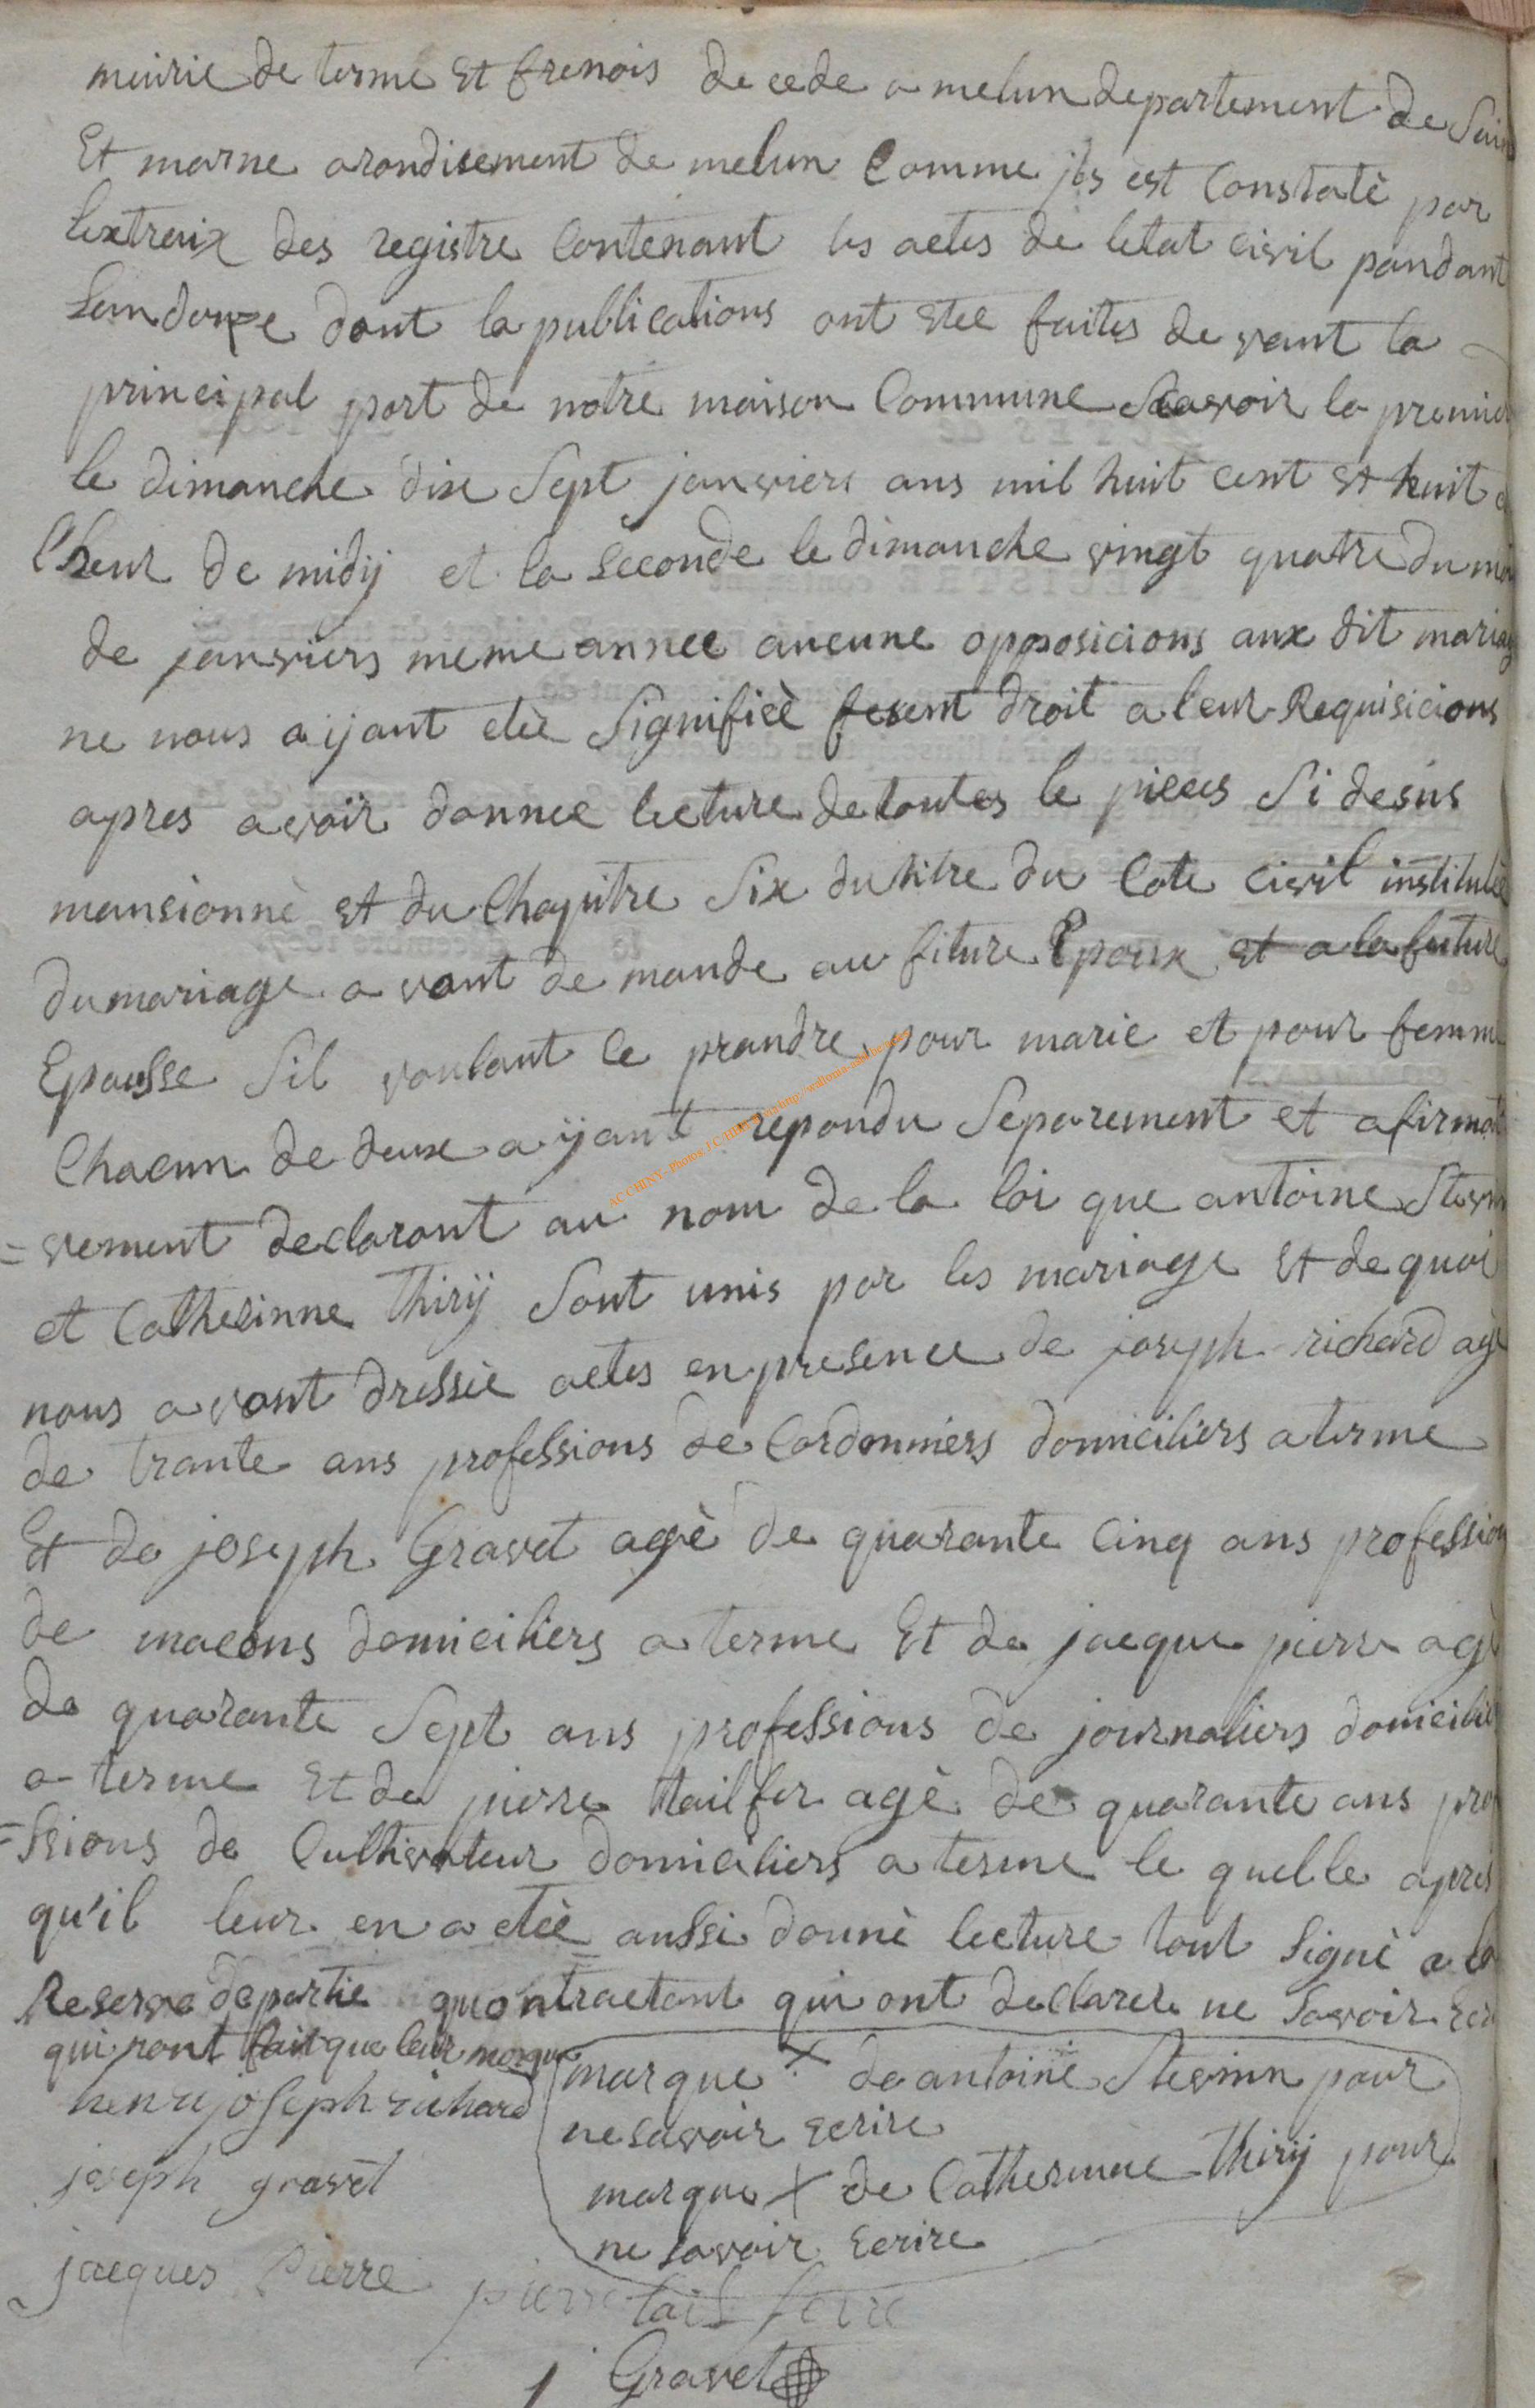 meirie de terme et frenois de cede a melun departement de Sain
Et marne arondisement de melun Comme jls est Constatè par
lextraix des registre Contenant les actes de letat civil pandant
Lan douze dont la publications ont etee faites de vant la
principal port de notre maison Commune Scavoir la premier
le dimanche dix Sept janviers ans mil huit cent et huit a
l'heur de midij et la Seconde le dimanche vingt quatre du moi
de janviers meme annee aucune opposicions aux dit mariag
ne nous aijant etèe Signifièe fesent droit a leur Requisicions
apres avoir donnee lecture de toutes le pieces Si desus
mansionnè et du Chapitre Six du titre du Cote civil institulè
du mariage avont de mande au future Epoux et a la future
Epousse Sil voulant ce prandre pour marie et pour femme
Chacun de deux aijant repondu Separement et afirmati
=vement declaront au nom de la loi que antoine Stevin
et Catherinne thirij Sont unis par les mariage et de quoi
nous avont dressèe actes en presence de joseph richard agè
de trante ans professions de Cordonniers domiciliers a terme
Et de joseph Gravet agè de quarante Cinq ans profession
de macons domiciliers a terme Et de jacque pierre agè
de quarante Sept ans professions de journaliers domicilie
a terme Et de pierre tailfer agè de quarante ans prof
=ssions de Cultivateur domiciliers a terme le quelle apres
qu'il leur en a etèe aussi donnè lecture tout Signè a la
Reserve de partie quontractant qui ont declarer ne Savoir ecr
qui nont fait que leur marque
marque x de antoine Stevinn pour
ne savoir ecrire
marque x de Catherinne thirij pour
ne savoir Ecrire
henri joseph richard
joseph gravet
jacques Pierre
pierre tail ferre
j Gravet
AC CHINY - Photos